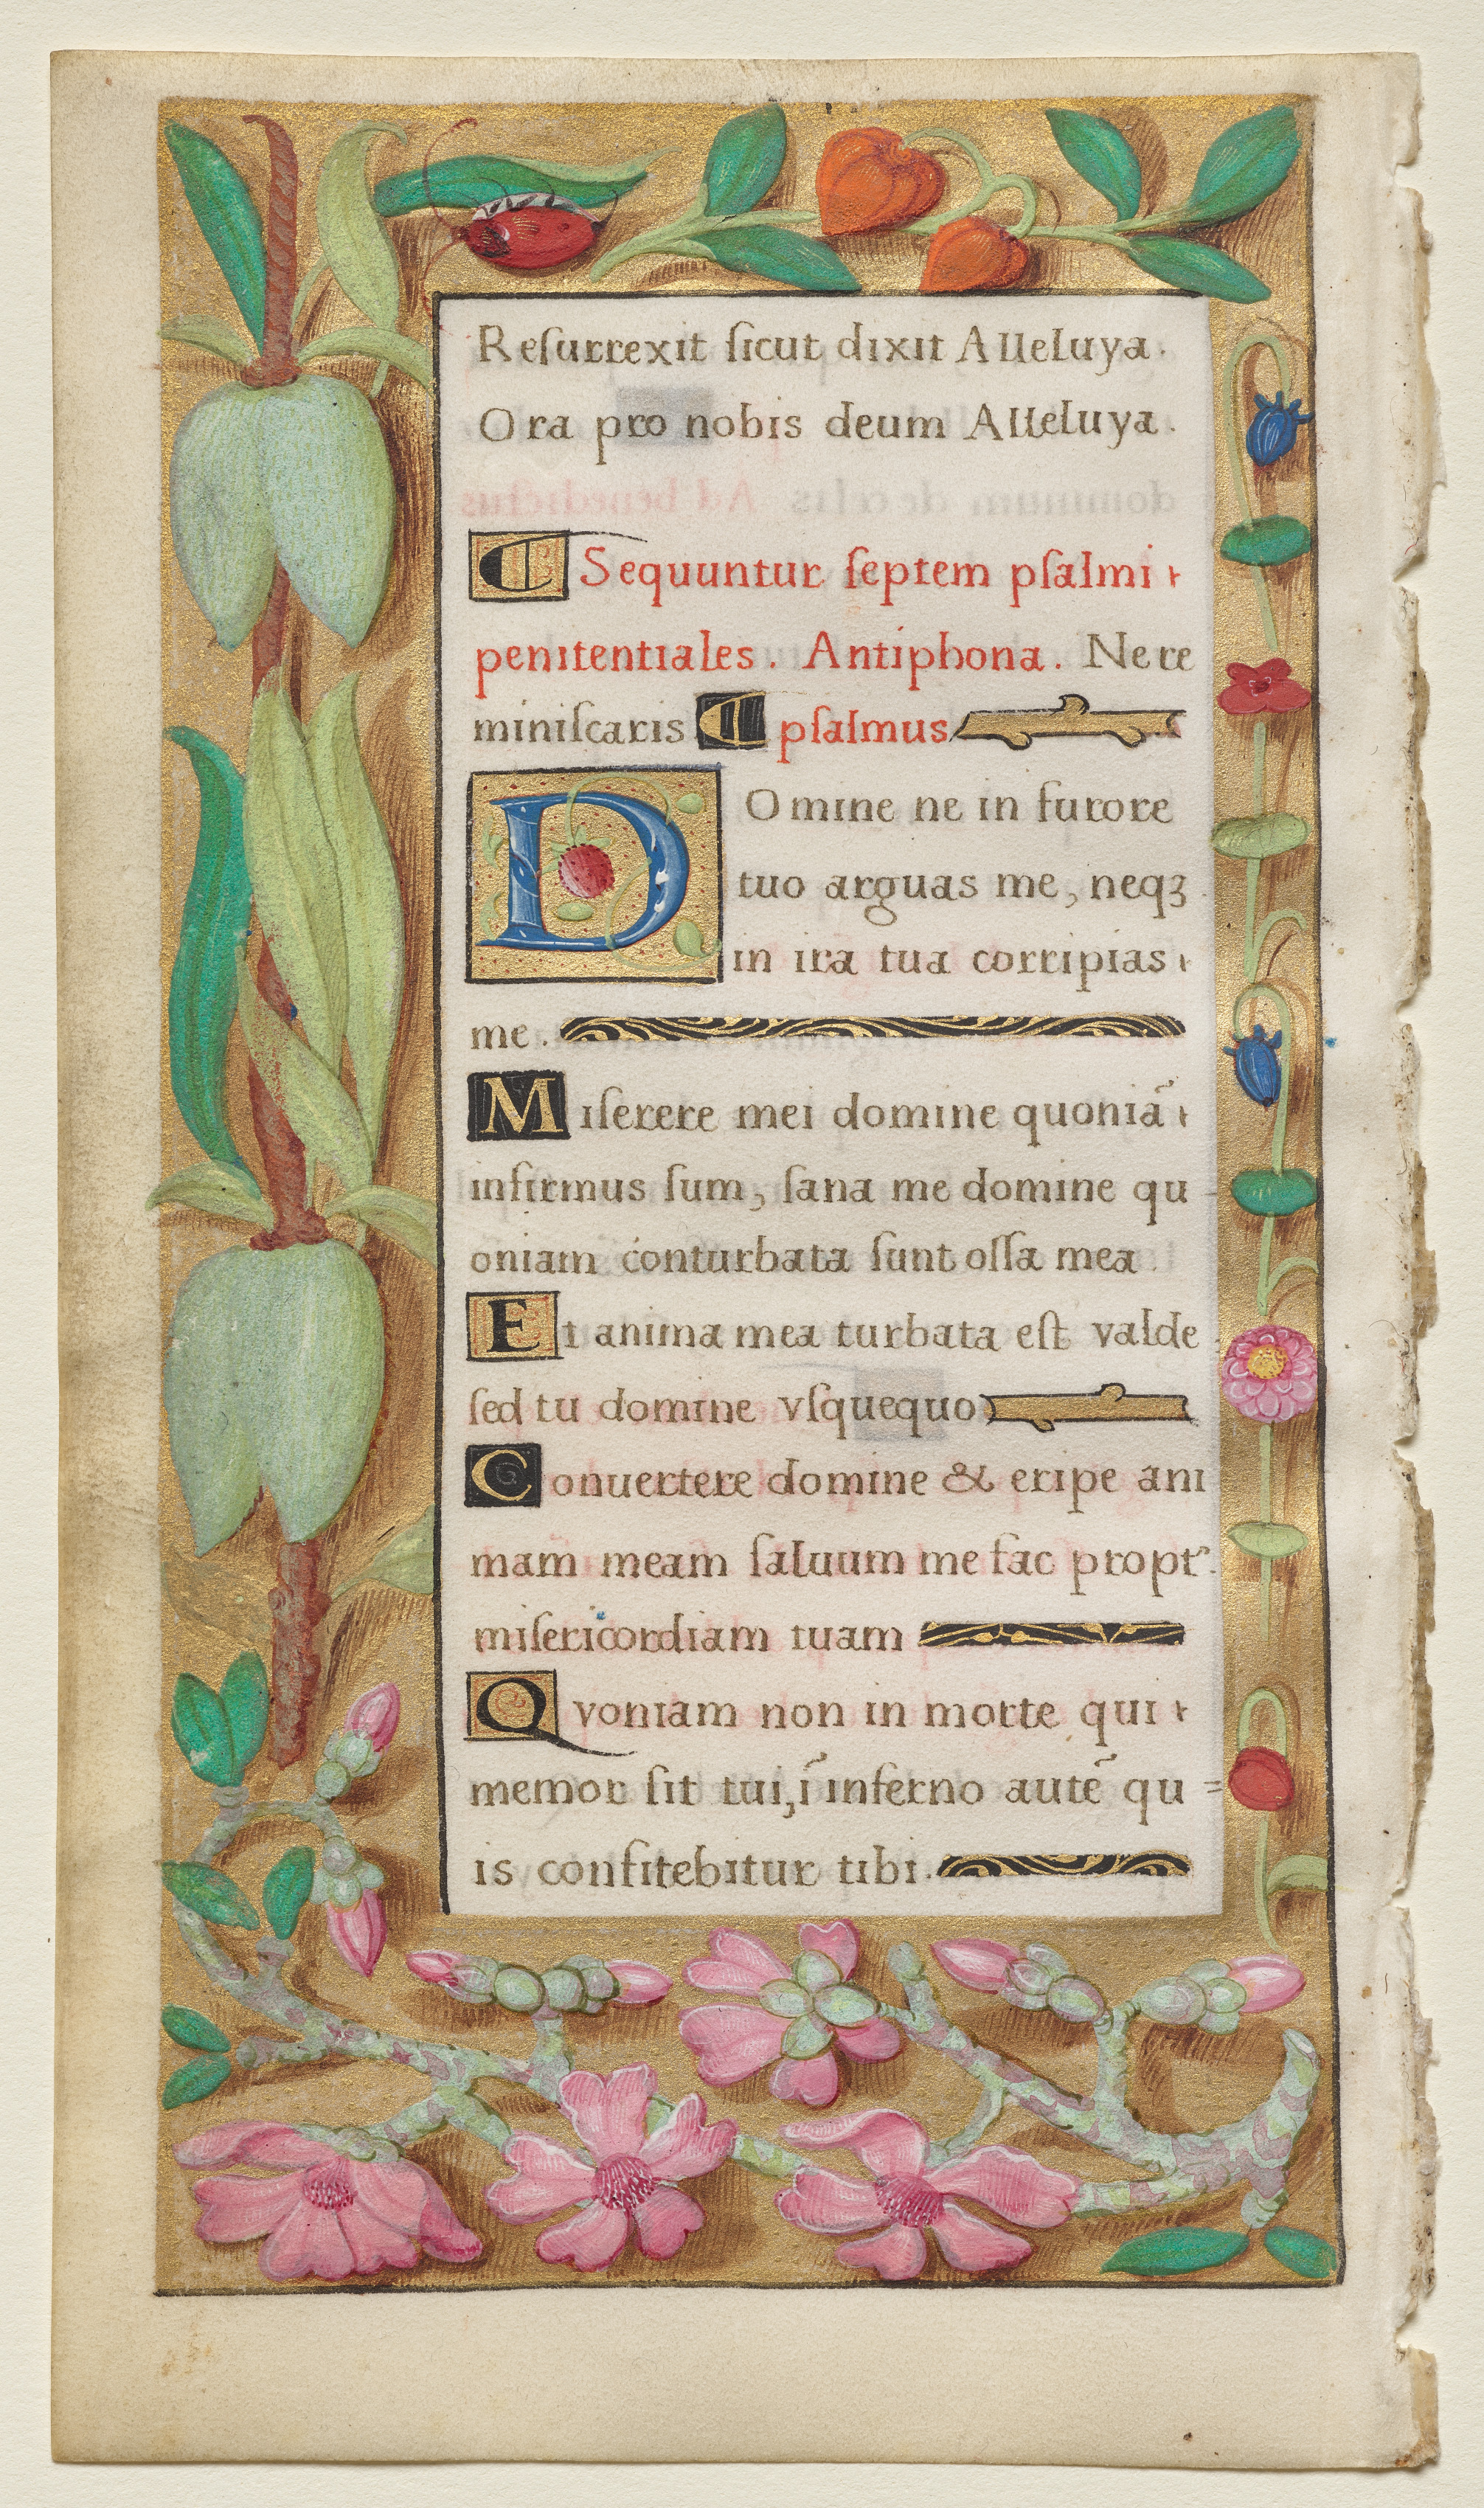 Reſurrexit ſicut dixit Alleluya.
Ora pro nobis deum Alleluya.
C Sequuntur ſeptem pſalmi
penitentiales. Antiphona. Ne re
miniſcaris C pſalmus
DOmine ne in furore
tuo arguas me, neqꝫ
in ira tua corripias
me.
Miſerere mei domine quoniã
infirmus ſum, ſana me domine qu-
oniam conturbata ſunt oſſa mea.
Et anima mea turbata eſt valde
ſed tu domine vſquequo
Conuertere domine & eripe ani
mam meam ſaluum me fac propt᷑
miſericordiam tuam
Qvoniam non in morte qui
memor ſit tui, ĩ inferno autẽ qu=
is confitebitur tibi.